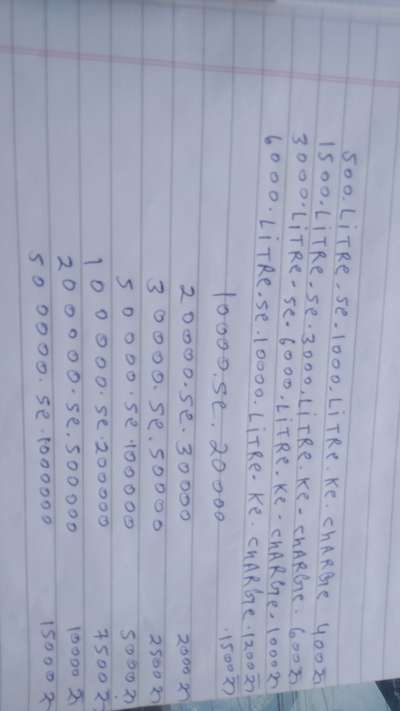 500.LiTRe-se-1000.LiTRe.Ke.chARGe 400रू
1500.LiTRe-se.3000.LiTRe.Ke-chARGe.600रू
3000.LiTRe-se-6000.LiTRe.Ke-chARGe.1000रू
6000.LiTRe.se.10000.LiTRe-Ke.chARGe.1200रू
10000.se.20000 .1500रू
20000.se.30000 2000रू
30000.se.50000 2500रू
50000.se.100000 5000रू
100000.se.200000 7500रू
200000.se.500000 10000रू
500000.se.1000000 15000रू